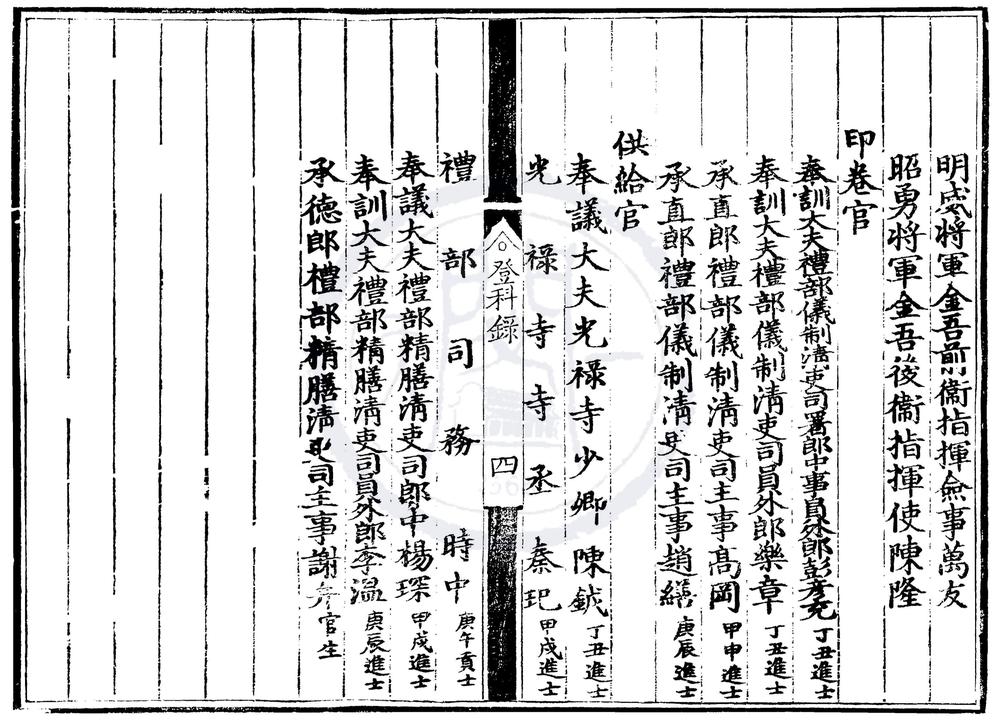 明威將軍金吾前衞指揮僉事萬友
昭勇將軍金吾後衞指揮使陳隆
印卷官
奉訓大夫禮部儀制淸吏司署郎中事員外郎彭彥充 丁丑進士
奉訓大夫禮部儀制淸吏司員外郎樂章 丁丑進士
承直郎禮部儀制淸吏司主事高岡 甲申進士
承直郎禮部儀制淸吏司主事趙繕 庚辰進士
供給官
奉議大夫光祿寺少卿陳鉞 丁丑進士
光祿寺寺丞秦玘 甲戌進士
登科錄 四
禮部司務時中 庚午貢士
奉議大夫禮部精膳淸吏司郎中楊琛 甲戌進士
奉訓大夫禮部精膳淸吏司員外郎李溫 庚辰進士
承德郎禮部精膳淸吏司主事謝彥 官生